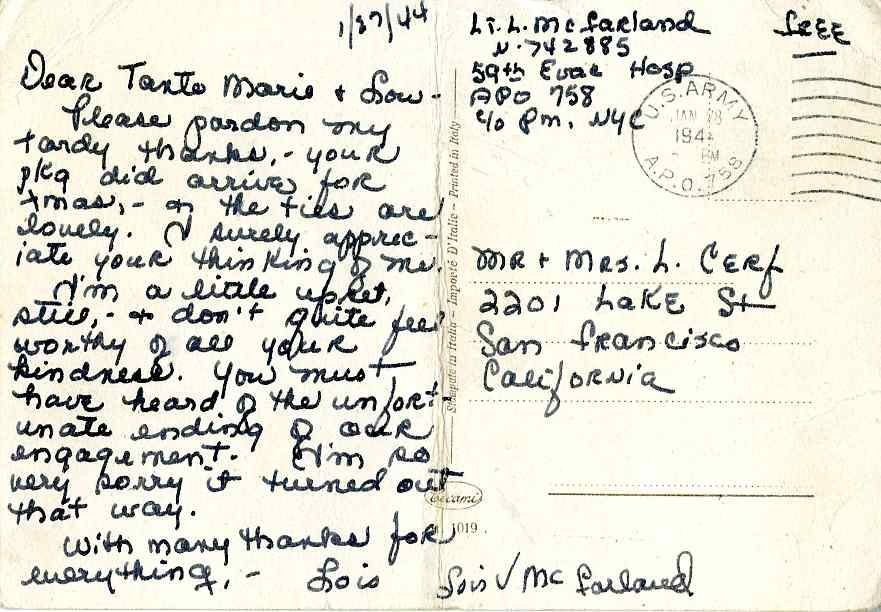 1/27/44
Dear Tante Marie + Lou -
Please pardon my
tardy thanks, - your
pkg did arrive for
Xmas, - + the ties are
lovely. I surely apprec-
iate your thinking of me.
I'm a little upset,
still, - + don't quite feel
worthy of all your
kindness. You must
have heard of the unfort-
unate ending of our
engagement. I'm so
very sorry it turned out
that way.
With many thanks for
everything, - Lois
Lt. L. McFarland
N. 742885
59th Evac Hosp
APO 758
c/o Pm. NYC
Free
U.S. ARMY
JAN 28
194
PM
A.P.O. 758
Mr + Mrs. L. Cerf
2201 Lake St
San Francisco
California
Stampato in Italia - Importé D'Italie - Printed in Italy
1019
Lois V McFarland